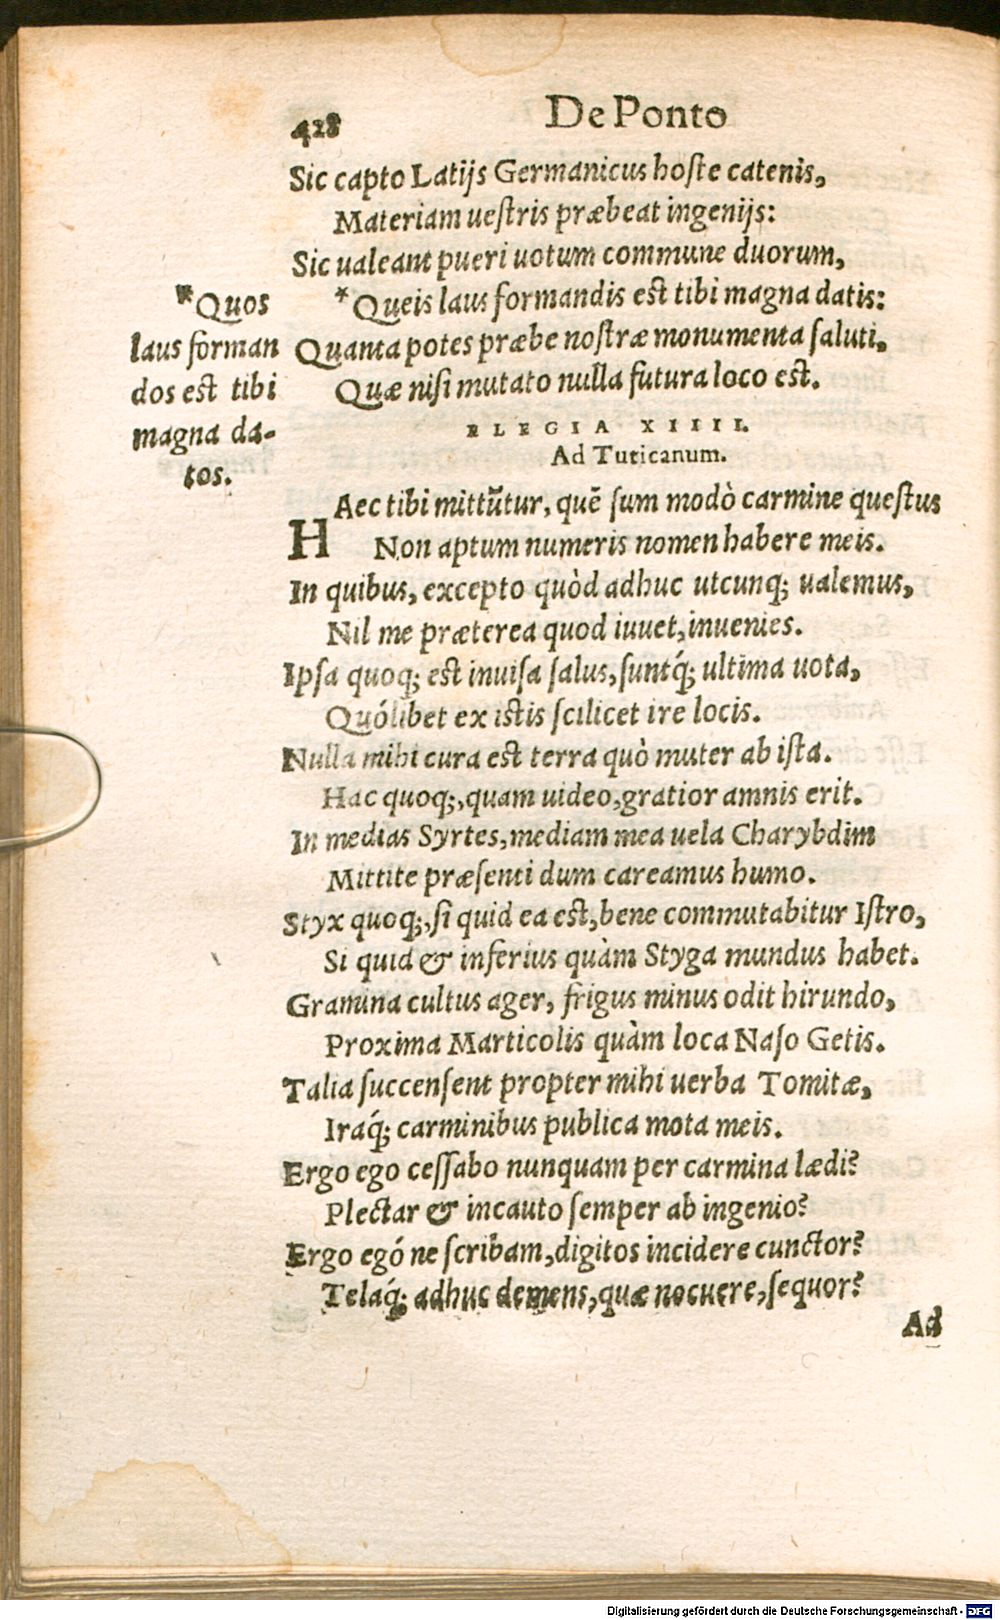 428
De Ponto
Sic capto Latijs Germanicus hoſte catenis,
Materiam ueſtris præbeat ingenijs:
Sic ualeant pueri uotum commune duorum,
*Queis laus formandis est tibi magna datis:
Quanta potes præbe noſtræ monumenta ſaluti,
Quæ niſi mutato nulla futura loco est.
*Quos
laus forman
dos est tibi
magna da-
tos.
ELEGIA XIIII.
Ad Tuticanum.
HAec tibi mittũtur, quẽ ſum modò carmine queſtus
Non aptum numeris nomen habere meis.
In quibus, excepto quòd adhuc utcunq; ualemus,
Nil me præterea quod iuuet, inuenies.
Ipſa quoq; est inuiſa ſalus, ſuntq́; ultima uota,
Quólibet ex istis ſcilicet ire locis.
Nulla mihi cura est terra quò muter ab iſta.
Hac quoq;, quam uideo, gratior amnis erit.
In medias Syrtes, mediam mea uela Charybdim
Mittite præſenti dum careamus humo.
Styx quoq;, ſi quid ea est, bene commutabitur Iſtro,
Si quid & inferius quàm Styga mundus habet.
Gramina cultus ager, frigus minus odit hirundo,
Proxima Marticolis quàm loca Naſo Getis.
Talia ſuccenſent propter mihi uerba Tomitæ,
Iraq́; carminibus publica mota meis.
Ergo ego ceſſabo nunquam per carmina lædi?
Plectar & incauto ſemper ab ingenio?
Ergo egó ne ſcribam, digitos incidere cunctor?
Telaq́; adhuc demens, quæ nocuere, ſequor?
Ad
Digitalisierung gefördert durch die Deutsche Forschungsgemeinschaft - DFG